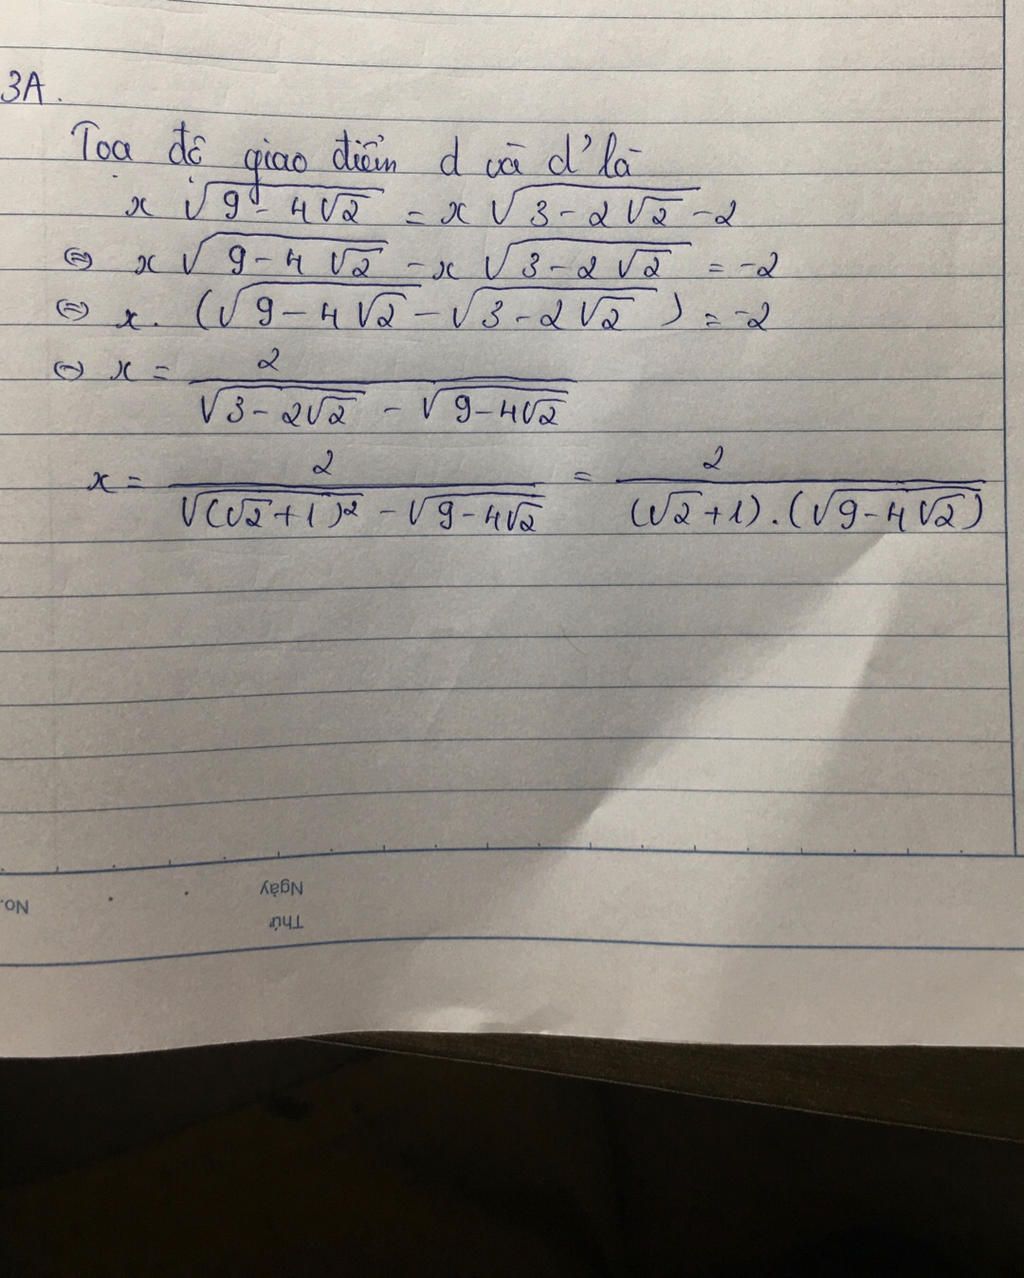 3A.
Toạ độ giao điểm d và d' là
x √(9 - 4√2) = x √(3 - 2√2) - 2
⇔ x √(9 - 4√2) - x √(3 - 2√2) = -2
⇔ x. (√(9 - 4√2) - √(3 - 2√2)) = -2
⇔ x = 2 / (√(3 - 2√2) - √(9 - 4√2))
x = 2 / (√((√2 + 1)²) - √(9 - 4√2)) = 2 / ((√2 + 1) . (√(9 - 4√2)))
No.
Ngày
Thứ